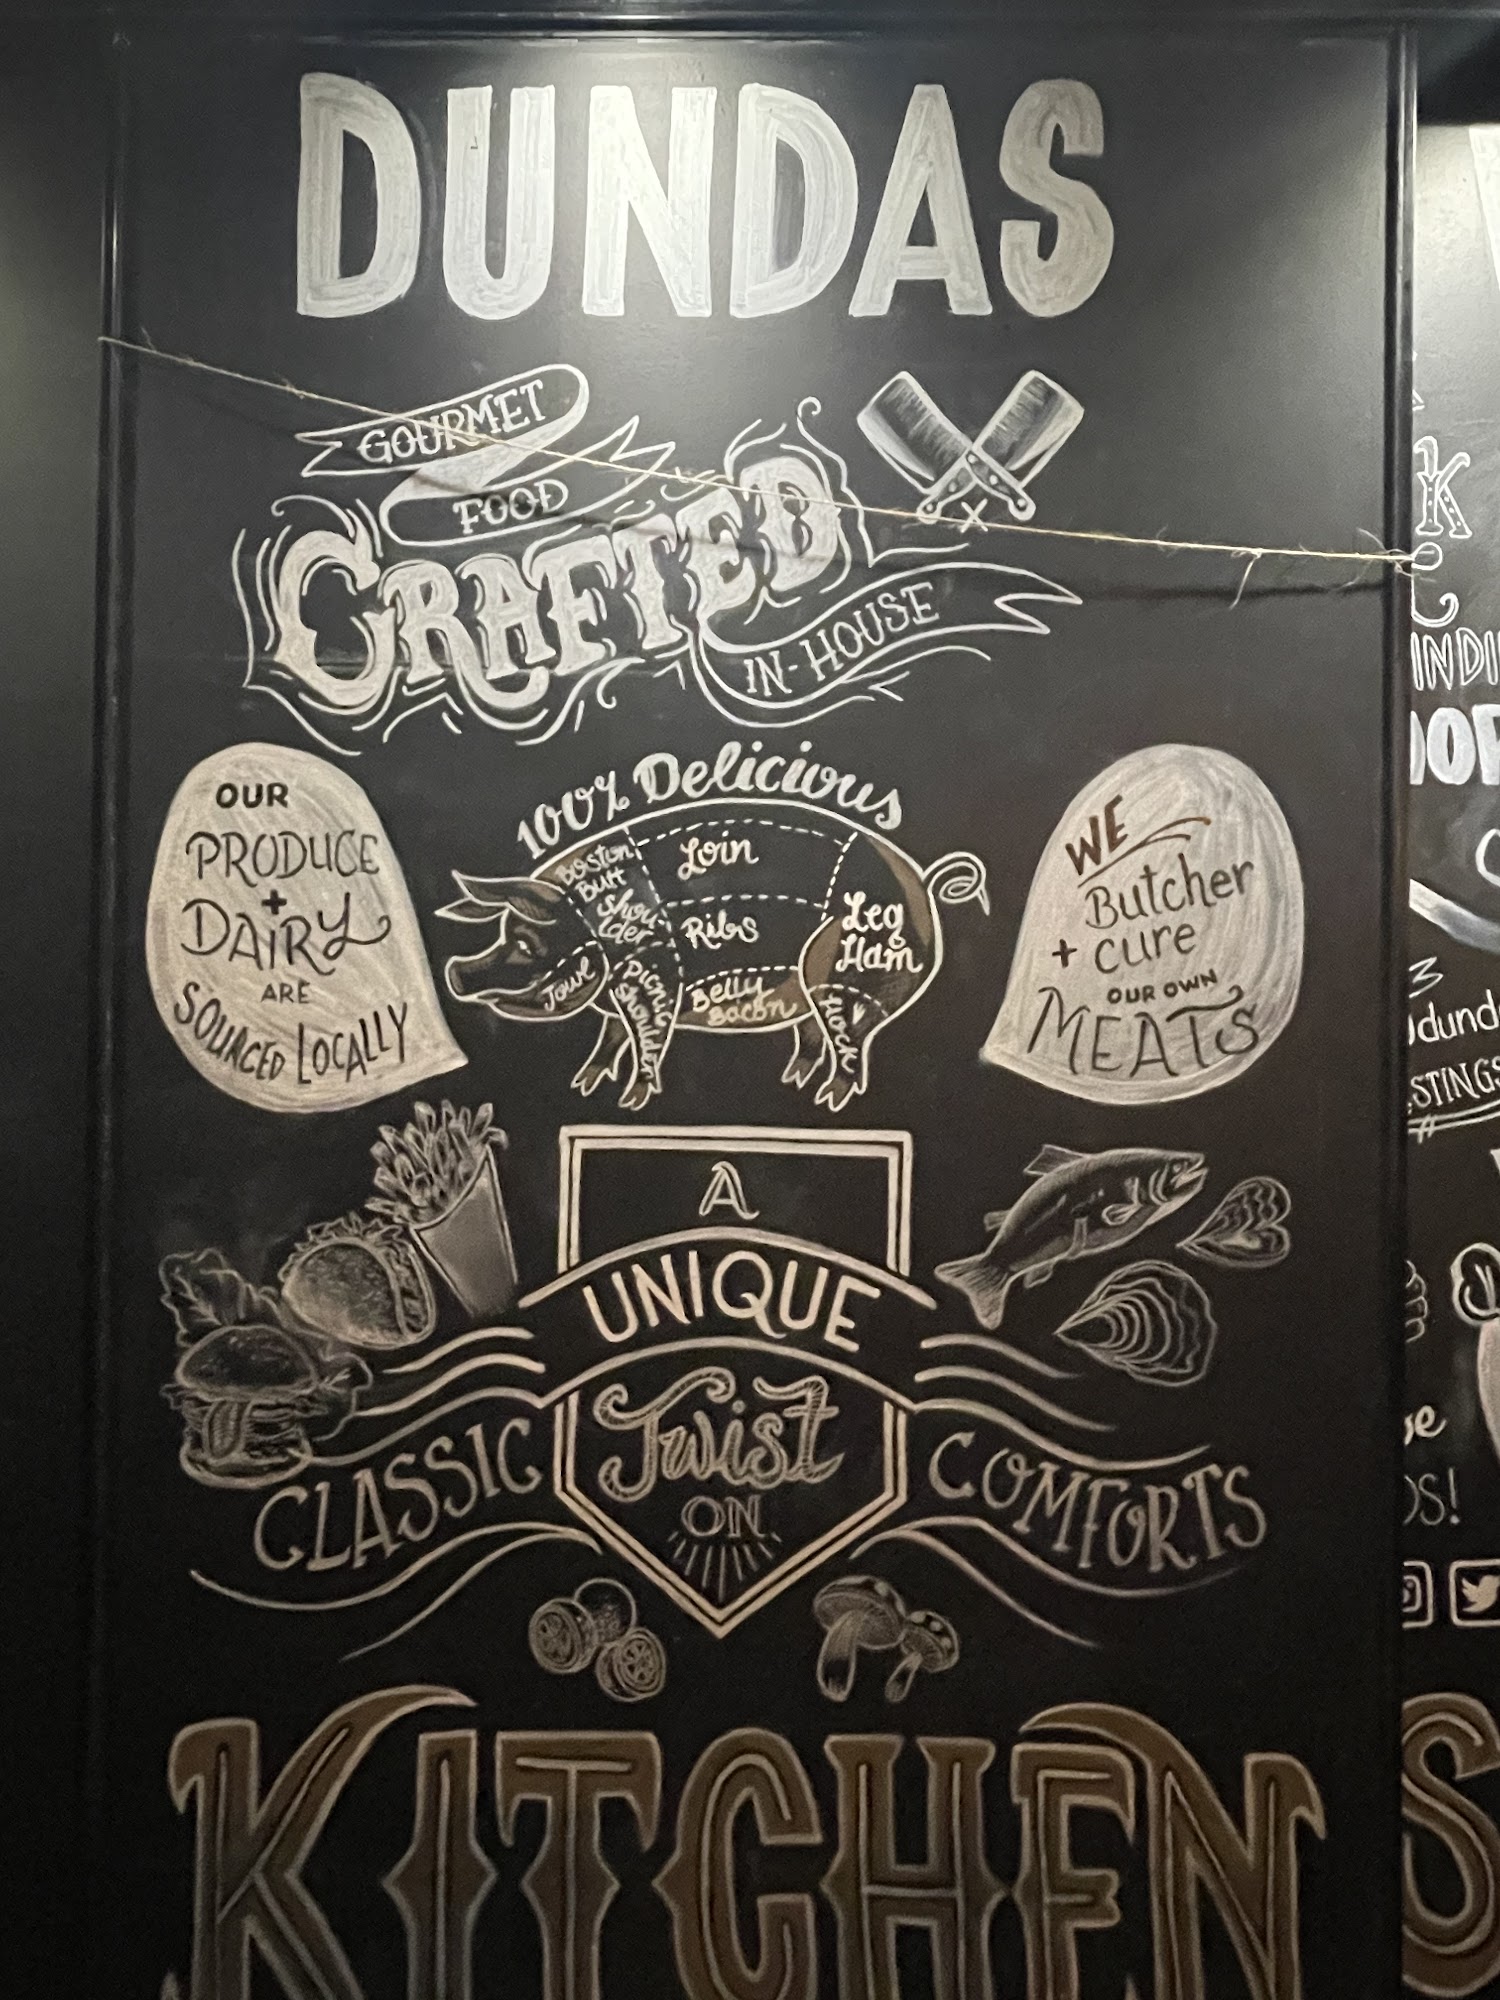 DUNDAS
GOURMET
FOOD
CRAFTED
IN-HOUSE
OUR
PRODUCE
+
DAIRY
ARE
SOURCED LOCALLY
100% Delicious
Boston
Butt
Shou-
lder
Loin
Ribs
Leg
Ham
Jowl
Picnic
Shoulder
Belly
Bacon
Hock
WE
Butcher
+ cure
OUR OWN
MEATS
A
UNIQUE
Twist
ON
CLASSIC
COMFORTS
KITCHEN
K
INDI
dund
STINGS
S!
S